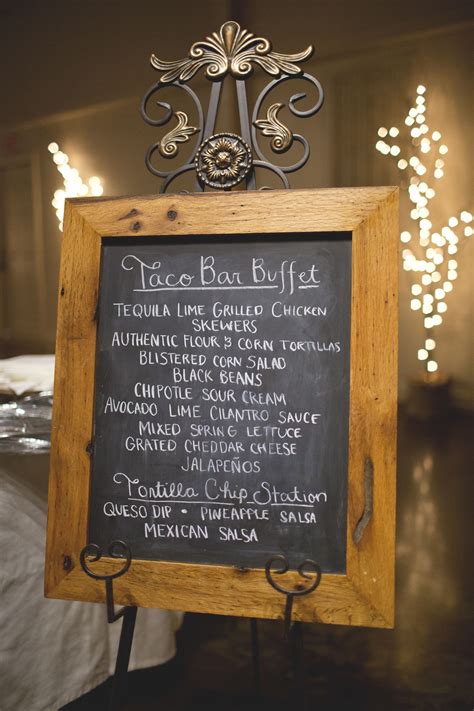 Taco Bar Buffet
TEQUILA LIME GRILLED CHICKEN
SKEWERS
AUTHENTIC FLOUR & CORN TORTILLAS
BLISTERED CORN SALAD
BLACK BEANS
CHIPOTLE SOUR CREAM
AVOCADO LIME CILANTRO SAUCE
MIXED SPRING LETTUCE
GRATED CHEDDAR CHEESE
JALAPEÑOS
Tortilla Chip Station
QUESO DIP • PINEAPPLE SALSA
MEXICAN SALSA